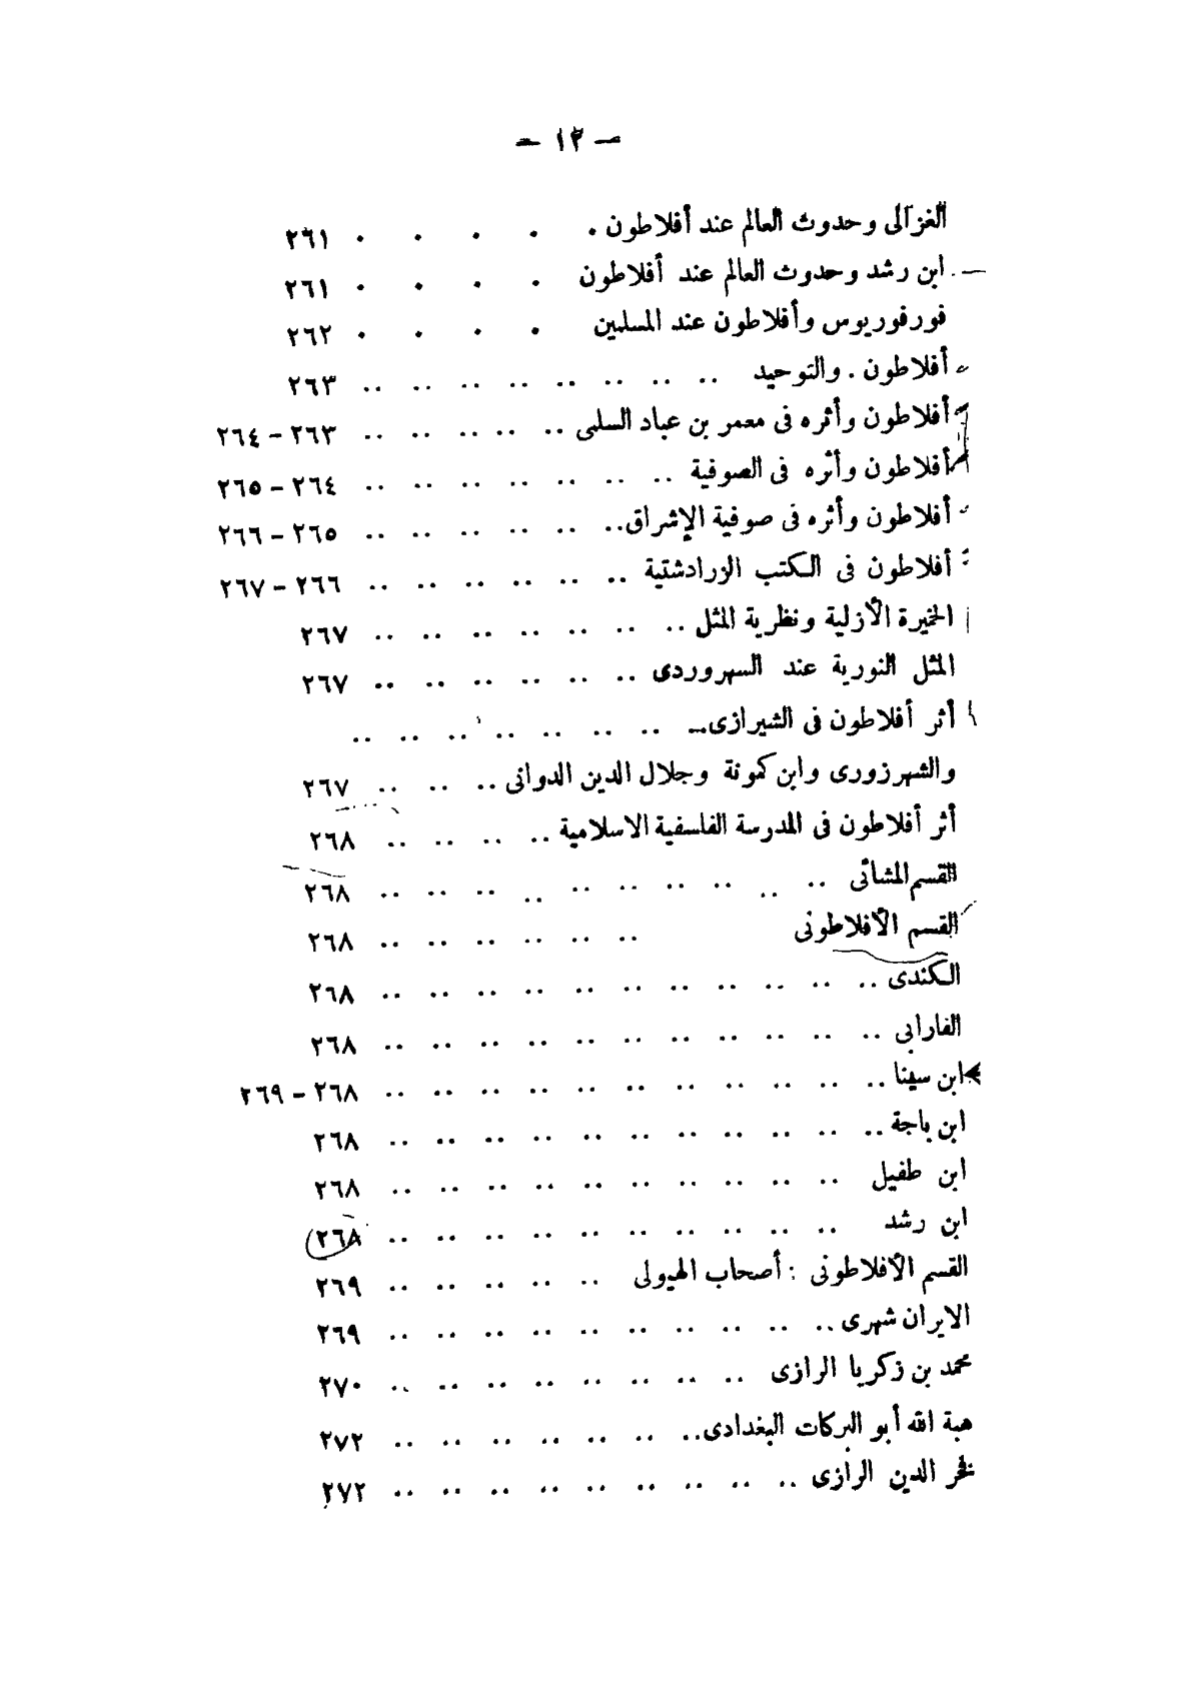 — ١٢ —
الغزالى وحدوث العالم عند أفلاطون . . . . . ٢٦١
ابن رشد وحدوث العالم عند أفلاطون . . . . ٢٦١
فورفوريوس وأفلاطون عند المسلمين . . . . ٢٦٢
أفلاطون . والتوحيد .. .. .. .. .. .. .. .. ٢٦٣
أفلاطون وأثره فى معمر بن عباد السلمى .. .. .. .. .. ٢٦٣ – ٢٦٤
أفلاطون وأثره فى الصوفية .. .. .. .. .. .. .. ٢٦٤ – ٢٦٥
أفلاطون وأثره فى صوفية الإشراق .. .. .. .. .. .. ٢٦٥ – ٢٦٦
أفلاطون فى الكتب الزرادشتية .. .. .. .. .. .. ٢٦٦ – ٢٦٧
الخميرة الأزلية ونظرية المثل .. .. .. .. .. .. .. ٢٦٧
المثل النورية عند السهروردى .. .. .. .. .. .. ٢٦٧
أثر أفلاطون فى الشيرازى .. .. .. .. .. .. .. ..
والشهرزورى وابن كمونة وجلال الدين الدوانى .. .. .. ٢٦٧
أثر أفلاطون فى المدرسة الفلسفية الاسلامية .. .. .. .. ٢٦٨
القسم المشائى .. .. .. .. .. .. .. .. .. .. ٢٦٨
القسم الأفلاطونى .. .. .. .. .. .. ٢٦٨
الكندى .. .. .. .. .. .. .. .. .. .. .. ٢٦٨
الفارابى .. .. .. .. .. .. .. .. .. .. .. ٢٦٨
ابن سينا .. .. .. .. .. .. .. .. .. .. .. ٢٦٨ – ٢٦٩
ابن باجة .. .. .. .. .. .. .. .. .. .. .. ٢٦٨
ابن طفيل .. .. .. .. .. .. .. .. .. .. ٢٦٨
ابن رشد .. .. .. .. .. .. .. .. .. .. ٢٦٨
القسم الأفلاطونى : أصحاب الهيولى .. .. .. .. .. ٢٦٩
الايران شهرى .. .. .. .. .. .. .. .. .. .. ٢٦٩
محمد بن زكريا الرازى .. .. .. .. .. .. .. .. ٢٧٠
هبة الله أبو البركات البغدادى .. .. .. .. .. .. .. ٢٧٢
فخر الدين الرازى .. .. .. .. .. .. .. .. .. ٢٧٢